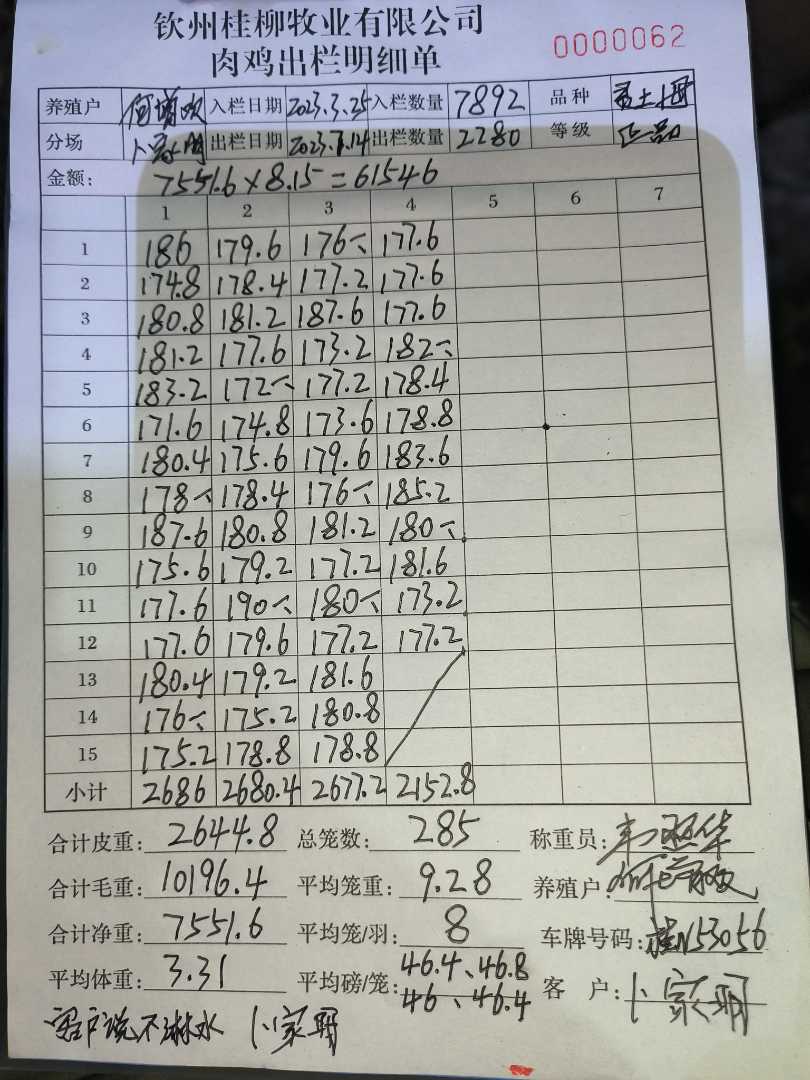 钦州桂柳牧业有限公司
肉鸡出栏明细单
0000062
养殖户 何 入栏日期 2023.3.25 入栏数量 7892 品种 土
分场 卜家明 出栏日期 2023.7.14 出栏数量 2280 等级 正品
金额: 7551.6×8.15=61546
1 2 3 4 5 6 7
1 186 179.6 176 177.6
2 174.8 178.4 177.2 177.6
3 180.8 181.2 187.6 177.6
4 181.2 177.6 173.2 182
5 183.2 172 177.2 178.4
6 171.6 174.8 173.6 178.8
7 180.4 175.6 179.6 183.6
8 178 178.4 176 185.2
9 187.6 180.8 181.2 180
10 175.6 179.2 177.2 181.6
11 177.6 190 180 173.2
12 177.6 179.6 177.2 177.2
13 180.4 179.2 181.6
14 176 175.2 180.8
15 175.2 178.8 178.8
小计 2686 2680.4 2677.2 2152.8
合计皮重: 2644.8 总笼数: 285 称重员: 华
合计毛重: 10196.4 平均笼重: 9.28 养殖户:
合计净重: 7551.6 平均笼/羽: 8 车牌号码: 桂N53056
平均体重: 3.31 平均磅/笼: 46.4、46.8 46、46.4 客 户: 卜家明
客户说不淋水 卜家明